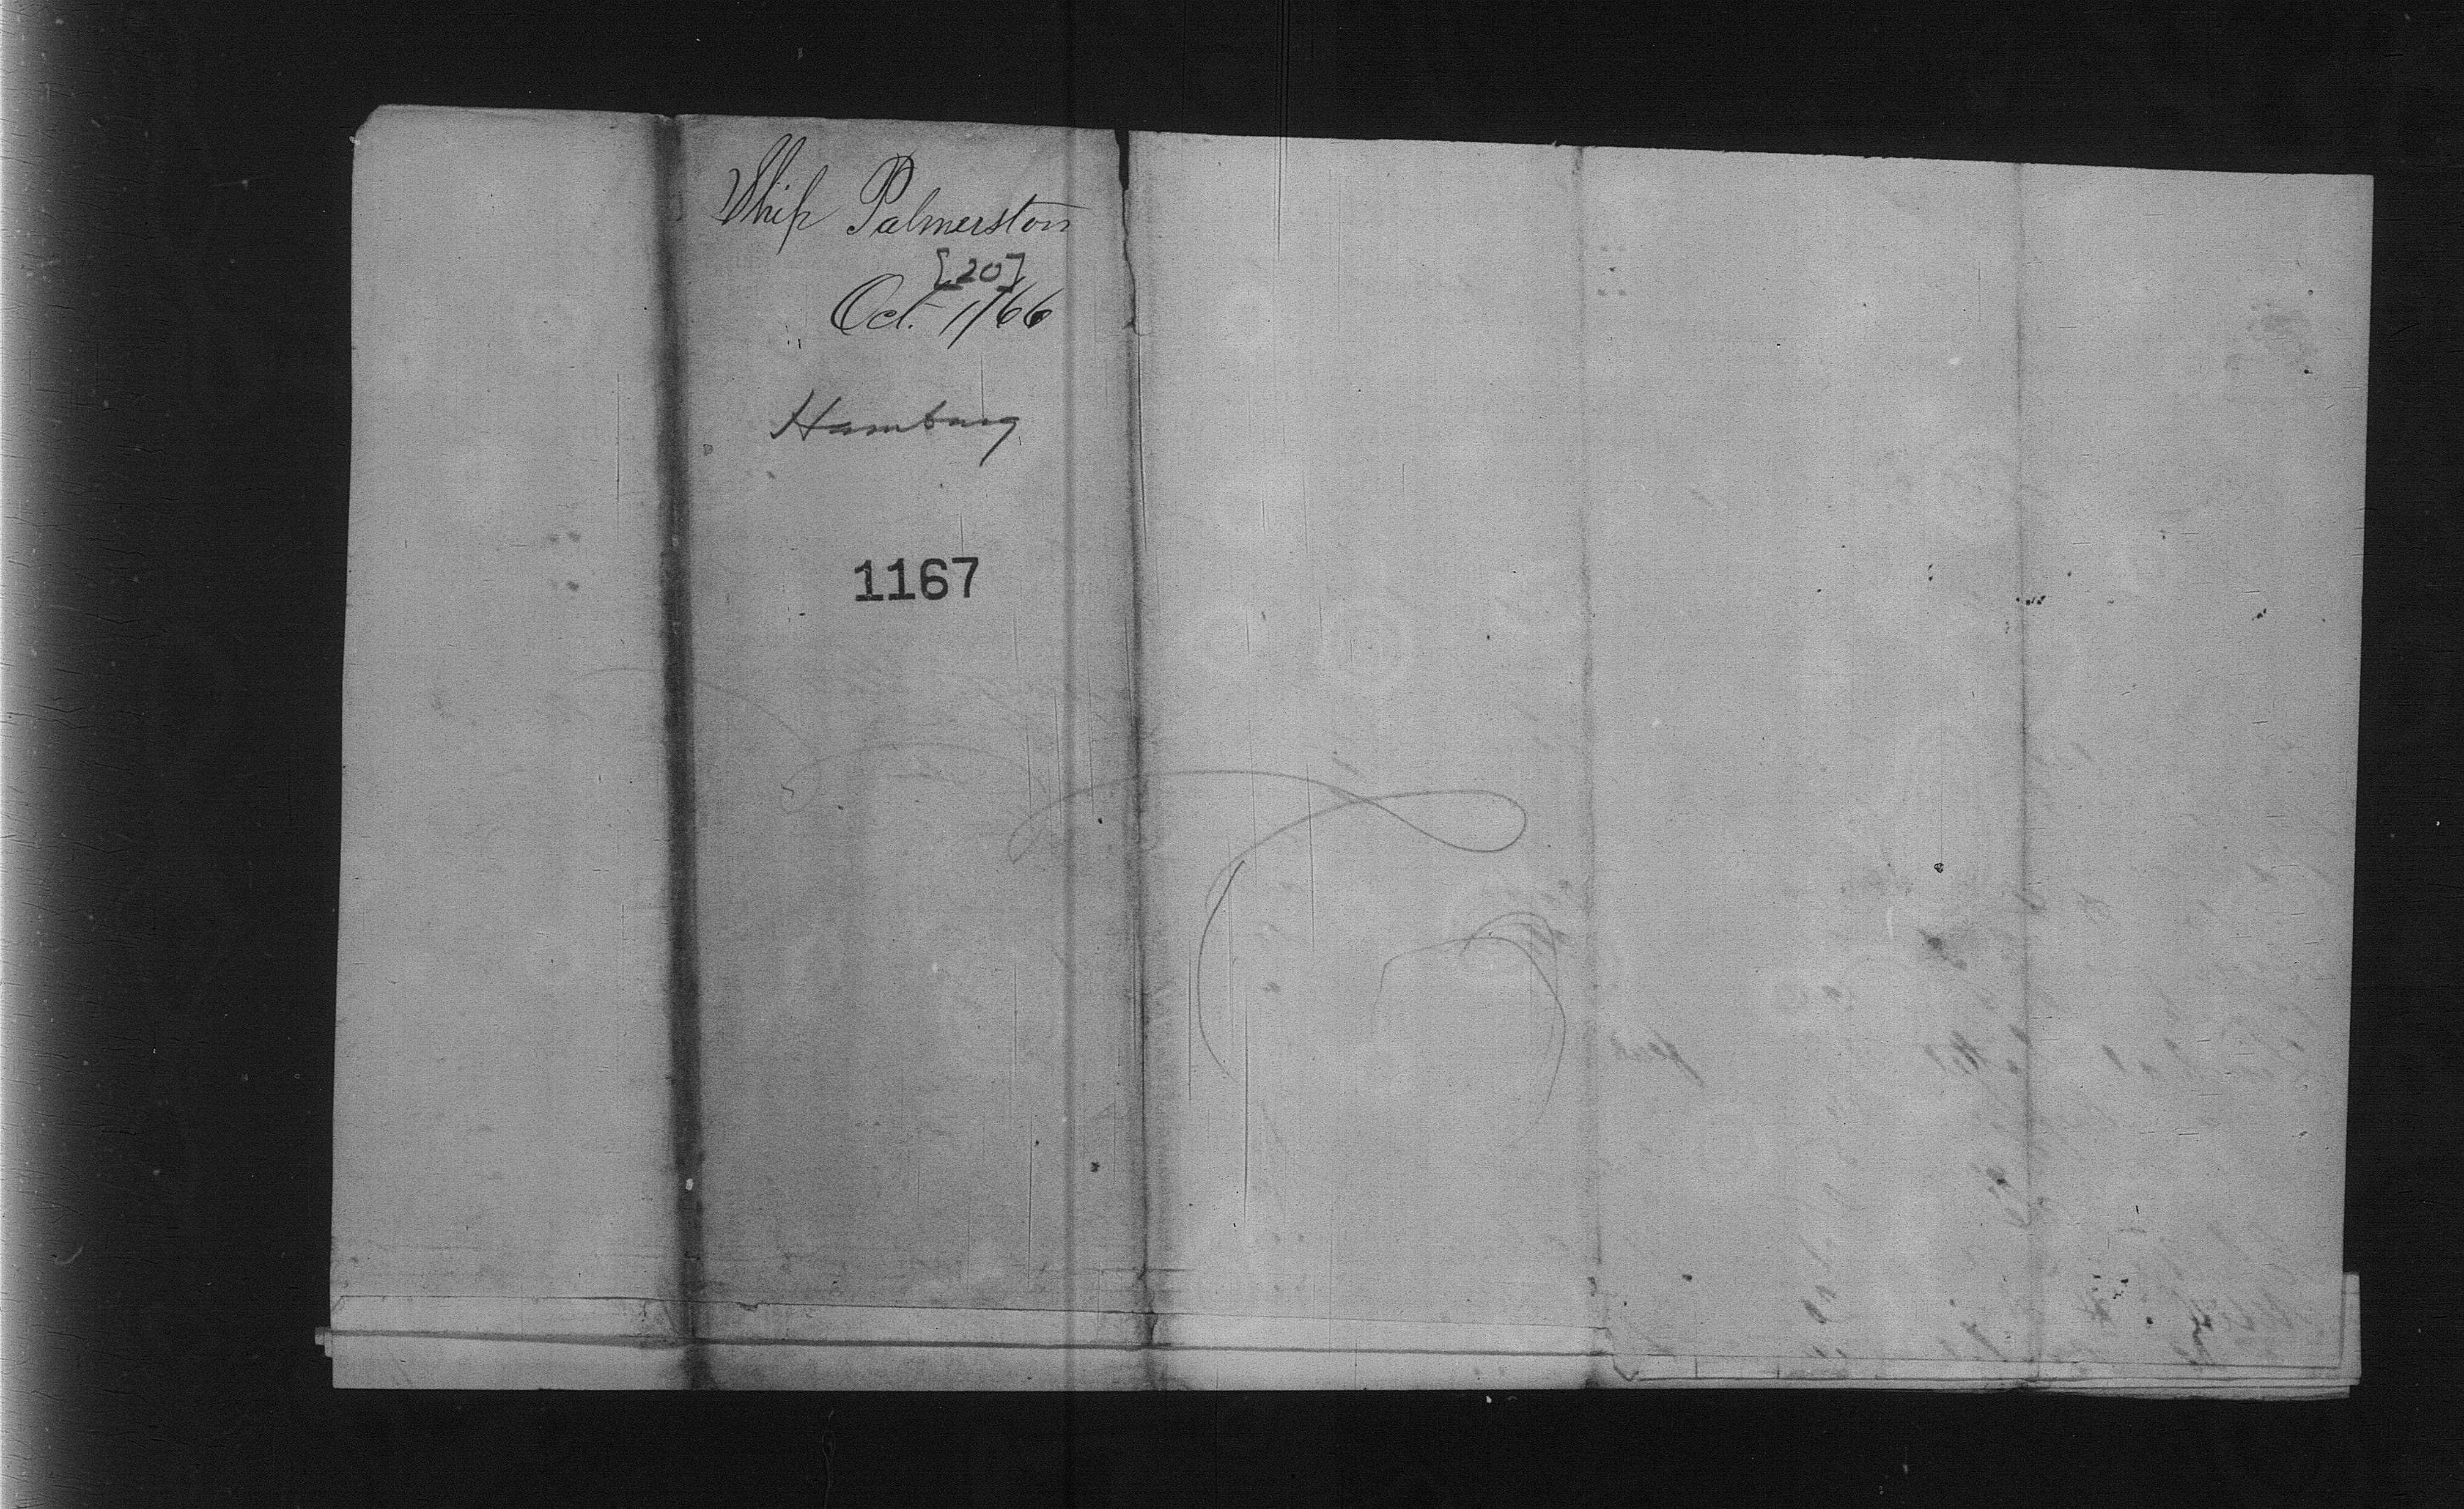 Ship Palmerston
[20]
Oct. 1/66
Hamburg
1167